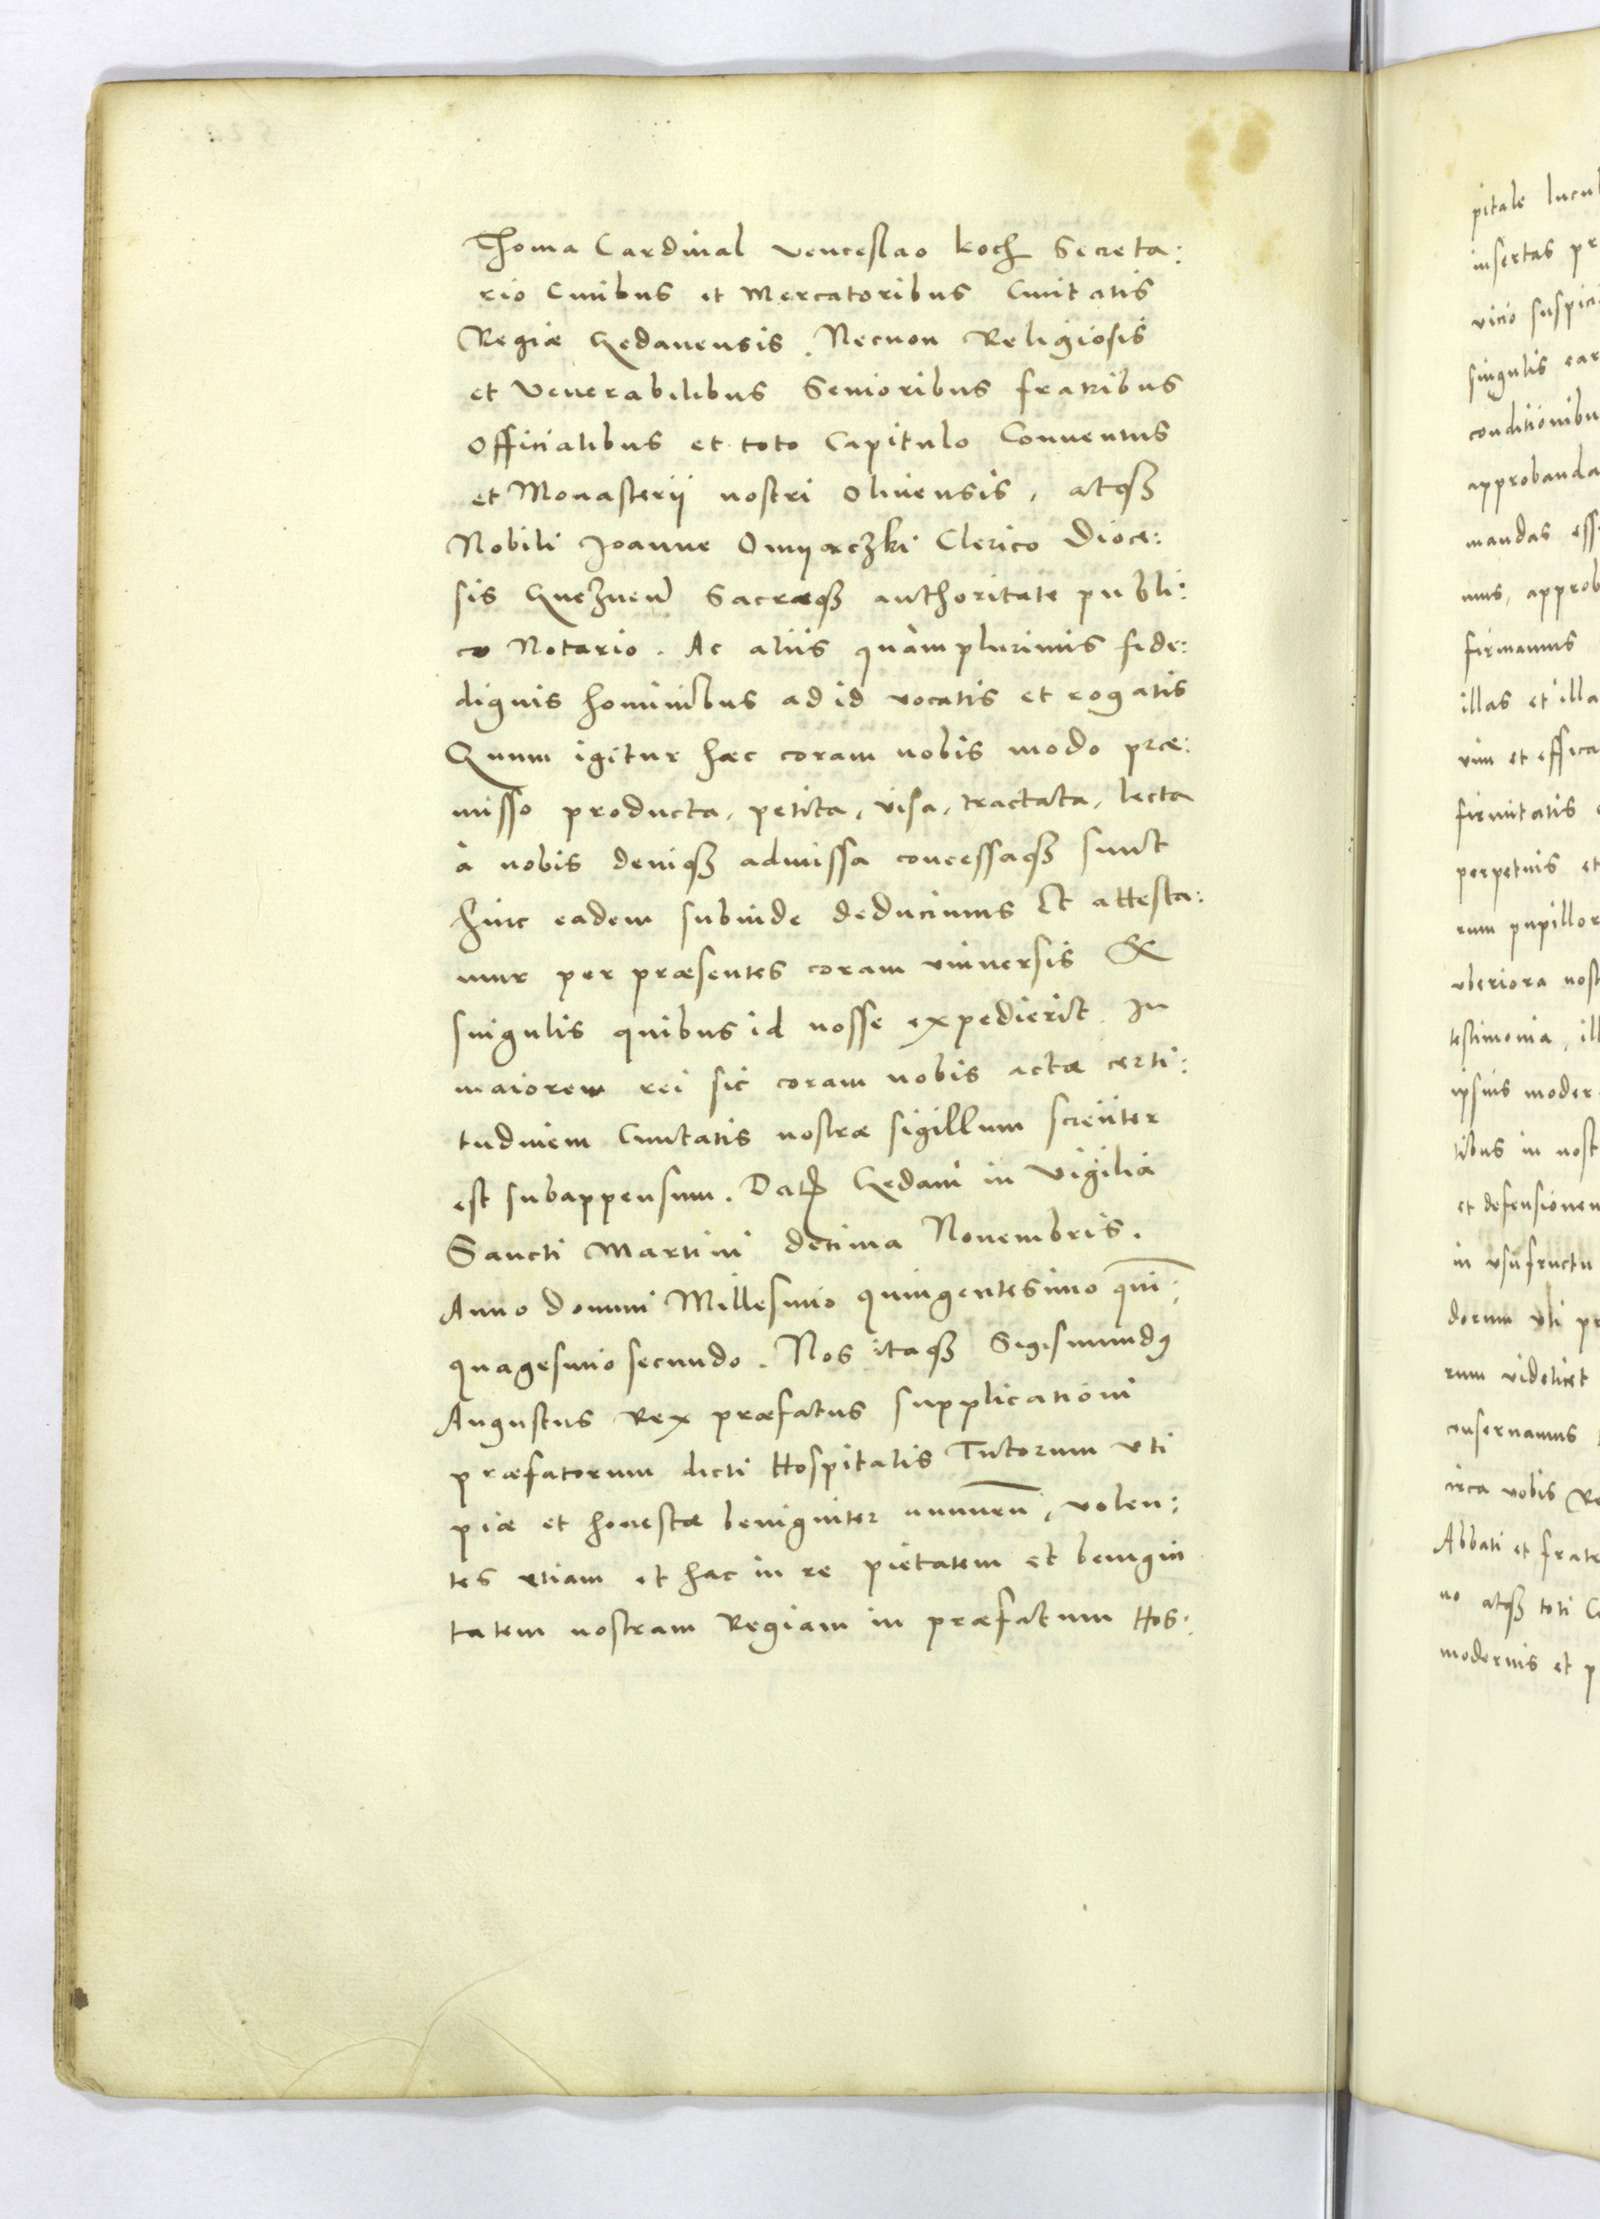 Thoma Cardinal Venceslao Koch Secreta:
rio Ciuibus et Mercatoribus Ciuitatis
Regiæ Gedanensis. Necnon Religiosis
et Venerabilibus Senioribus fratribus
Officialibus et toto Capitulo Conuentus
et Monasterij nostri Oliuensis, atq3
Nobili Joanne Clerico Dioce:
sis Sacræq3 authoritate publi:
co Notario. Ac aliis quàmplurimis fide:
dignis hominibus ad id vocatis et rogatis
Quum igitur hæc coram nobis modo præ:
misso producta, petita, visa, tractata, lecta
à nobis deniq3 admissa concessaq3 sunt
hinc eadem subinde deducimus Et attesta:
mur per præsentes coram vniuersis &
singulis quibus id nosse expedierit. In
maiorem rei sic coram nobis actæ certi:
tudinem Ciuitatis nostræ sigillum scienter
est subappensum. Dat Gedani in Vigilia
Sancti Martini decima Nouembris.
Anno Domini Millesimo quingentesimo quin:
quagesimo secundo. Nos itaq3 Sigismundus
Augustus Rex præfatus supplicationi
præfatorum dicti Hospitalis Tutorum vti
piæ et honestæ benigniter annuen, volen:
tes etiam et hac in re pietatem et benigni
tatem nostram Regiam in præfatum Hos:
pitale
insertas
vicio
singulis
approbanda
mandas
firmamus
illas et illa
vim et
firmitatis
perpetuis et
rum
vberiora
testimonia,
ipsius
tibus in
et defensionem
in vsufructu
dorum vti
rum videlicet
conseruamus
circa nobis
Abbati et
no atq3 toti
modernis et